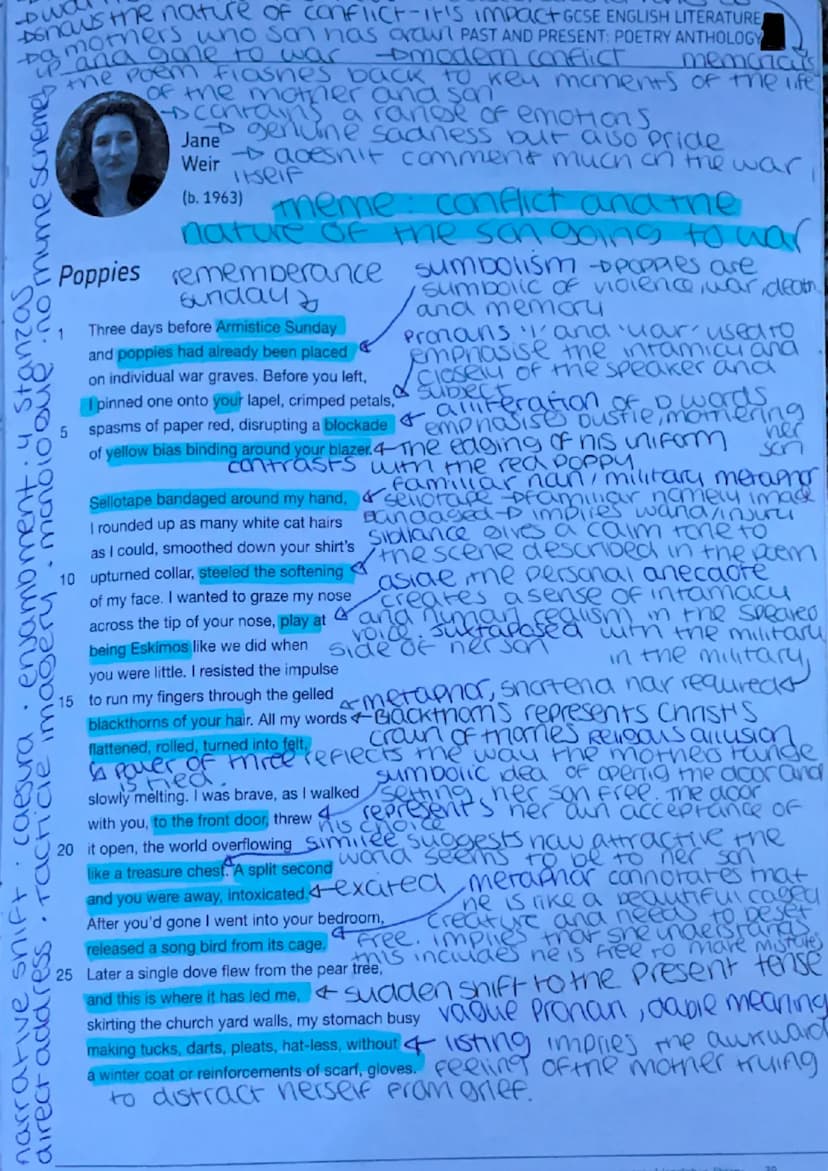 shows the nature of conflict - it's impact GCSE ENGLISH LITERATURE
a mothers who son has grown PAST AND PRESENT: POETRY ANTHOLOGY
up and gone to war → modern conflict memorials
the poem flashes back to key moments of the life
of the mother and son
→ contains a range of emotions
→ genuine sadness but also pride
→ doesn't comment much on the war
itself
Jane
Weir
(b. 1963)
theme: conflict and the
nature of the son going to war
Poppies
rememberance
sunday
sumbolism → poppies are
sumbolic of violence, war, death
and memory
1 Three days before Armistice Sunday
and poppies had already been placed
on individual war graves. Before you left,
I pinned one onto your lapel, crimped petals,
5 spasms of paper red, disrupting a blockade
of yellow bias binding around your blazer.
pronouns 'I' and 'your' used to
emphasise the intamicy and
closely of the speaker and
subject
alliteration of D words
emphasises bustle, mothering
her
son
← the edging of his uniform
contrasts with the red poppy
Sellotape bandaged around my hand,
I rounded up as many white cat hairs
as I could, smoothed down your shirt's
10 upturned collar, steeled the softening
of my face. I wanted to graze my nose
across the tip of your nose, play at
being Eskimos like we did when
you were little. I resisted the impulse
15 to run my fingers through the gelled
blackthorns of your hair. All my words
flattened, rolled, turned into felt,
military metaphor
bandaged →
siblance gives a calm tone to
the scene described in the poem
personal anecdote
creates a sense of intamacy
and human realism in the
voice. juxtaposed with the military
side of her son
in the military
← metaphor, required
← Blackthorns represents Christ's
religous allusion
power of three reflects the way the mothers
is tied.
slowly melting. I was brave, as I walked
with you, to the front door, threw
20 it open, the world overflowing
like a treasure chest. A split second
and you were away, intoxicated.
After you'd gone I went into your bedroom,
released a song bird from its cage.
25 Later a single dove flew from the pear tree,
and this is where it has led me,
skirting the church yard walls, my stomach busy
making tucks, darts, pleats, hat-less, without
a winter coat or reinforcements of scarf, gloves.
sumbolic idea of the door and
setting her son free. The door
represents her own acceptance of
his choice
suggests how attractive the
world seems to be to her son
← excited
metaphor connotates that
he is like a beautiful caged
creature and needs to be set
free. implies that she understands
this includes he is free to make mistakes
← sudden shift to the present tense
vague pronoun, double meaning
← listing implies the awkward
feeling of the mother trying
to distract herself from grief.
narrative shift · caesura · enjambment · 4 stanzas
direct address · imagery · no rhyme scheme